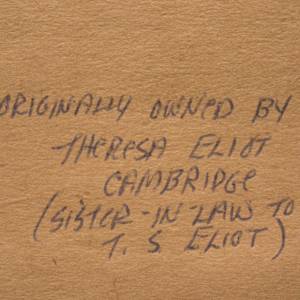 ORIGINALLY OWNED BY
THERESA ELIOT
CAMBRIDGE
(SISTER-IN-LAW TO
T. S. ELIOT)